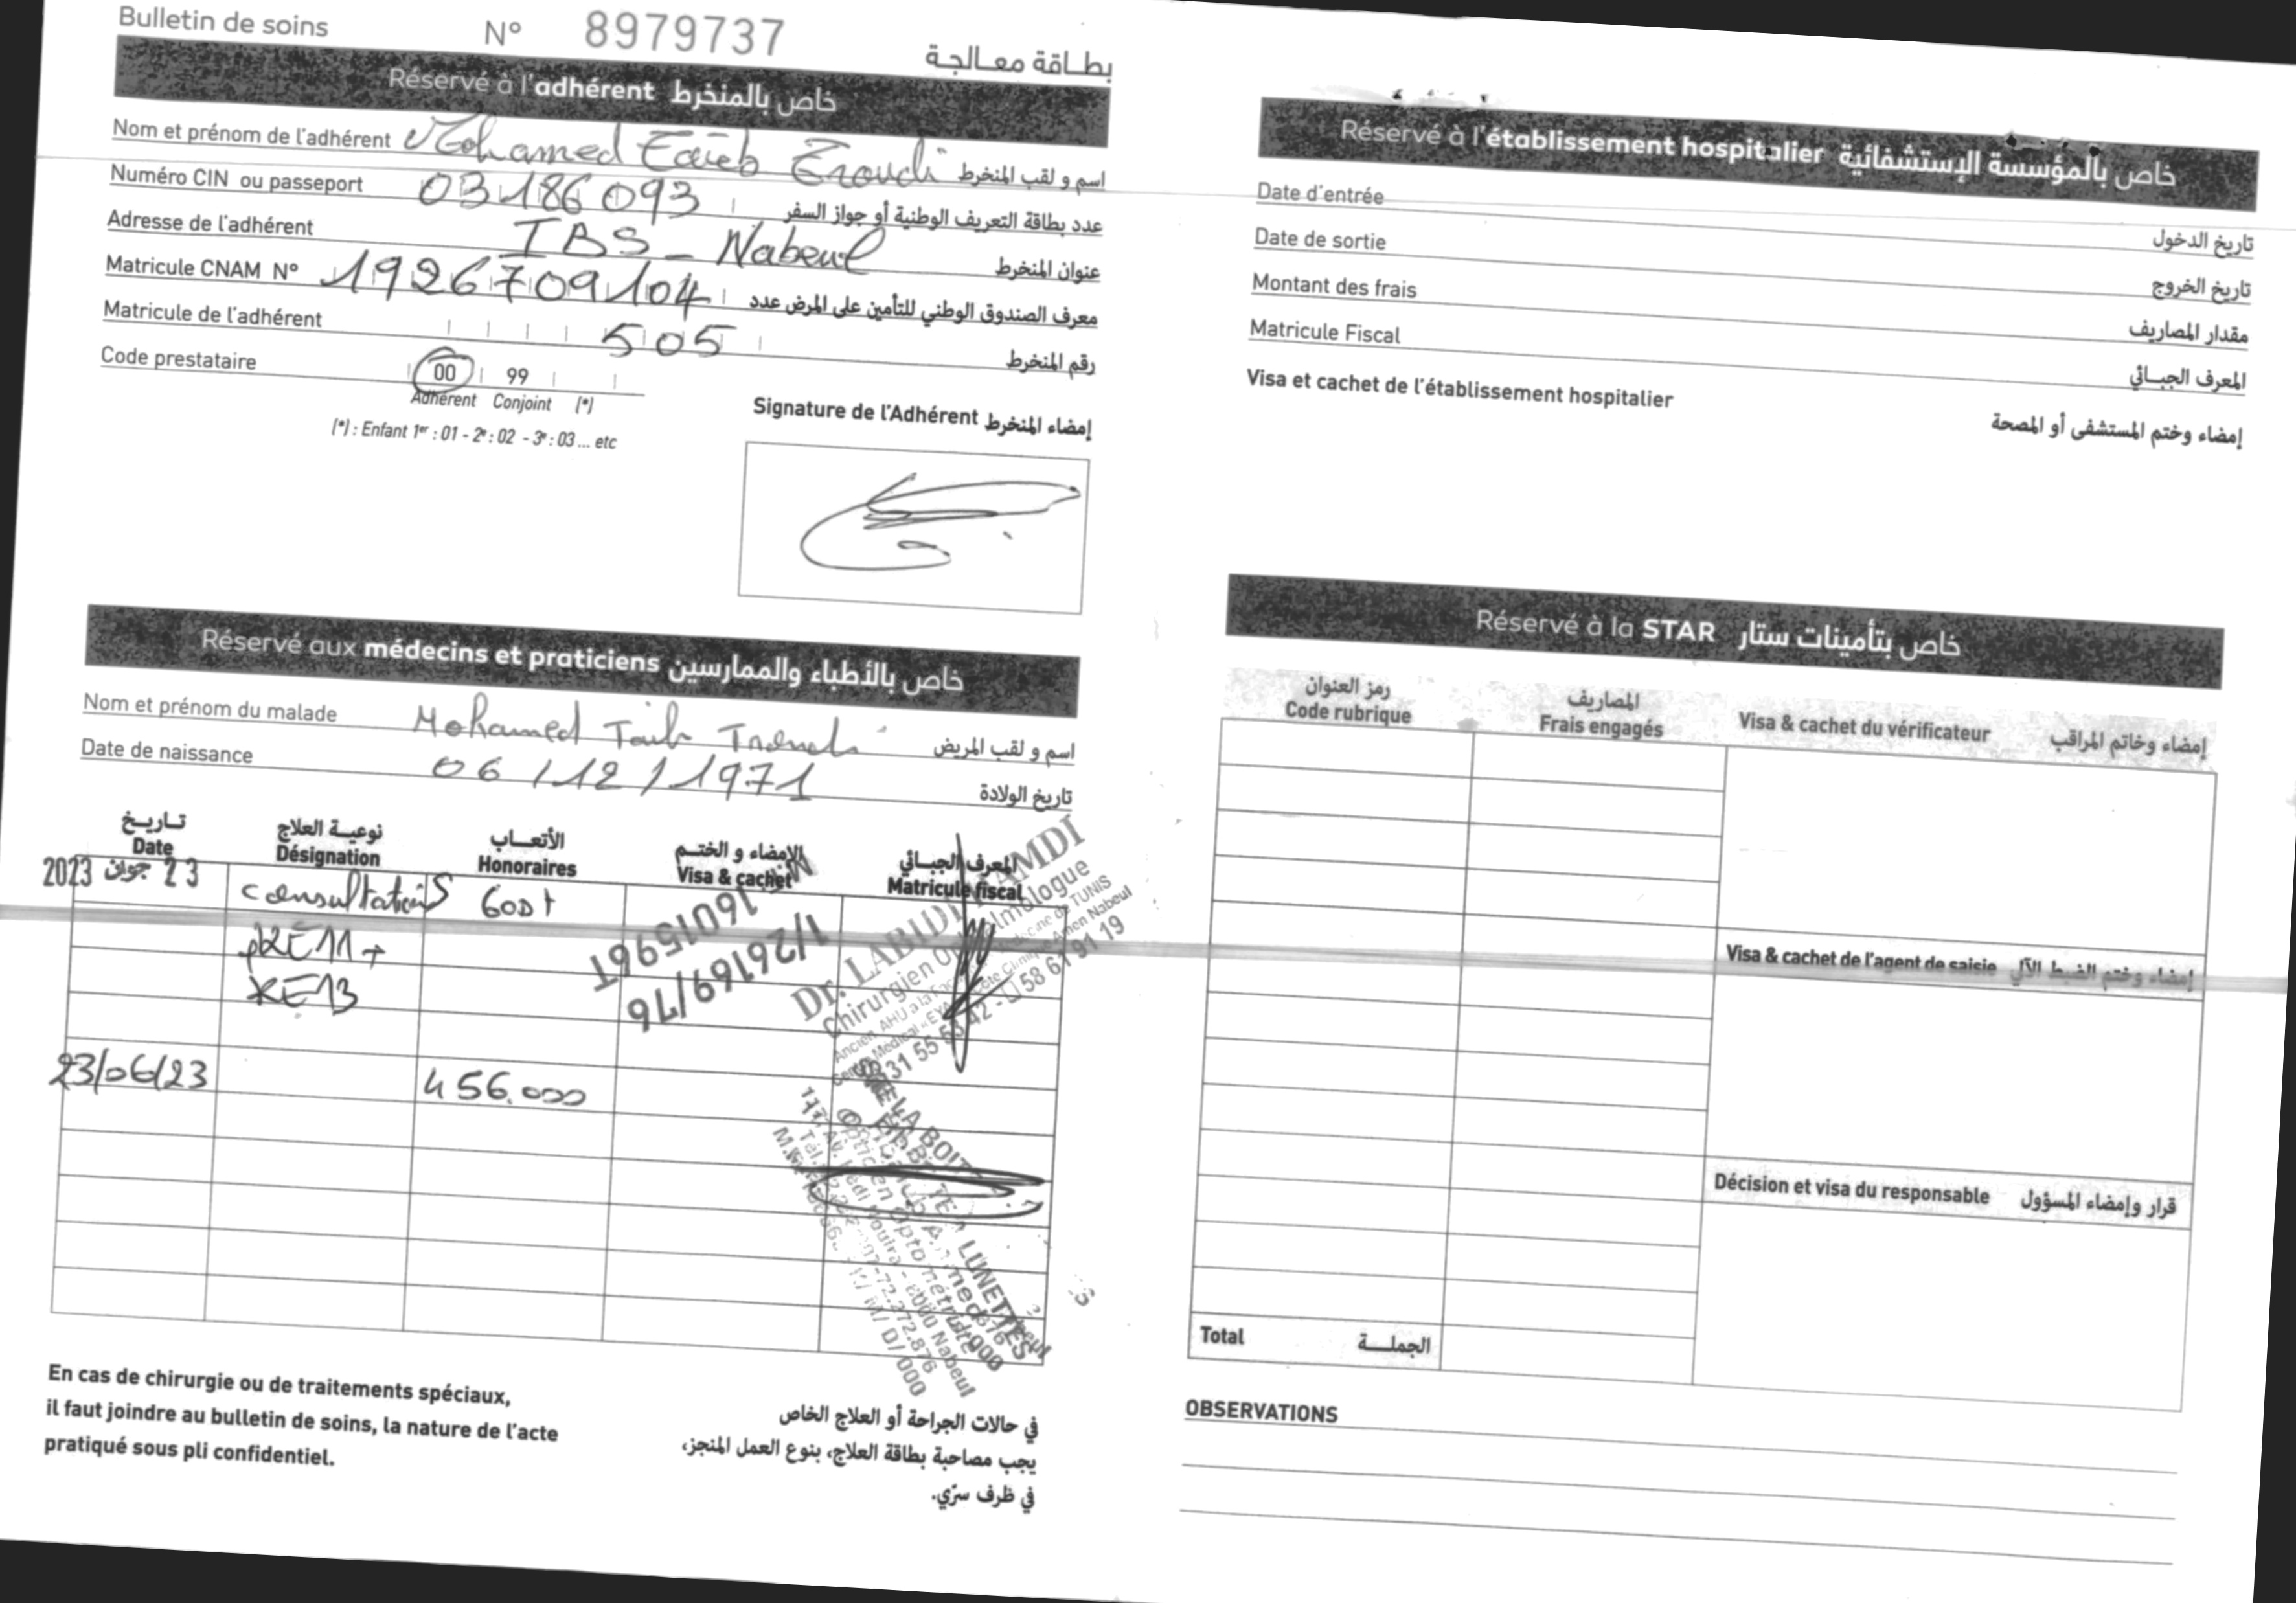 Bulletin de soins N° 8979737 بطاقة معالجة
Réservé à l'adhérent خاص بالمنخرط
Nom et prénom de l'adhérent Mohamed Taieb اسم و لقب المنخرط
Numéro CIN ou passeport 03186093 عدد بطاقة التعريف الوطنية أو جواز السفر
Adresse de l'adhérent IBS - Nabeul عنوان المنخرط
Matricule CNAM N° 1926709104 معرف الصندوق الوطني للتأمين على المرض عدد
Matricule de l'adhérent 505 رقم المنخرط
Code prestataire 00 99
Adhérent Conjoint (*)
(*) : Enfant 1er : 01 - 2e : 02 - 3e : 03 ... etc
Signature de l'Adhérent إمضاء المنخرط
Réservé aux médecins et praticiens خاص بالأطباء والممارسين
Nom et prénom du malade Mohamed Taieb اسم و لقب المريض
Date de naissance 06/12/1971 تاريخ الولادة
تاريخ نوعية العلاج الأتعاب الإمضاء و الختم المعرف الجبائي
Date Désignation Honoraires Visa & cachet Matricule fiscal
23 جوان 2023 consultation 60Dt
KE11 +
KE13
1/26169/76
Dr. LABIDI
Chirurgien
58 61 91 19
23/06/23 456.000
LUNETTES
En cas de chirurgie ou de traitements spéciaux,
il faut joindre au bulletin de soins, la nature de l'acte
pratiqué sous pli confidentiel.
في حالات الجراحة أو العلاج الخاص
يجب مصاحبة بطاقة العلاج، بنوع العمل المنجز،
في ظرف سرّي.
Réservé à l'établissement hospitalier خاص بالمؤسسة الإستشفائية
Date d'entrée تاريخ الدخول
Date de sortie تاريخ الخروج
Montant des frais مقدار المصاريف
Matricule Fiscal المعرف الجبائي
Visa et cachet de l'établissement hospitalier إمضاء وختم المستشفى أو المصحة
Réservé à la STAR خاص بتأمينات ستار
رمز العنوان المصاريف
Code rubrique Frais engagés Visa & cachet du vérificateur إمضاء وخاتم المراقب
Visa & cachet de l'agent de saisie إمضاء وختم الضبط الآلي
Décision et visa du responsable قرار وإمضاء المسؤول
Total الجملة
OBSERVATIONS